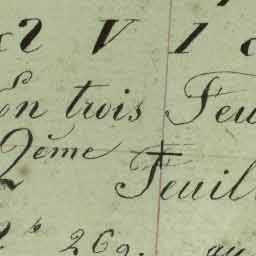 V I
En trois Feu
2ème Feuil
269.